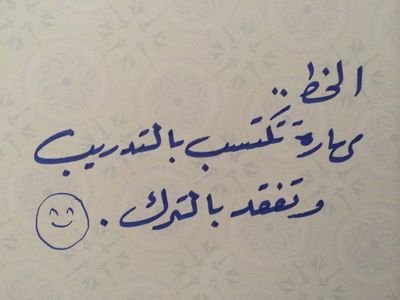 الخط ..
مهارة تكتسب بالتدريب
وتفقد بالترك .